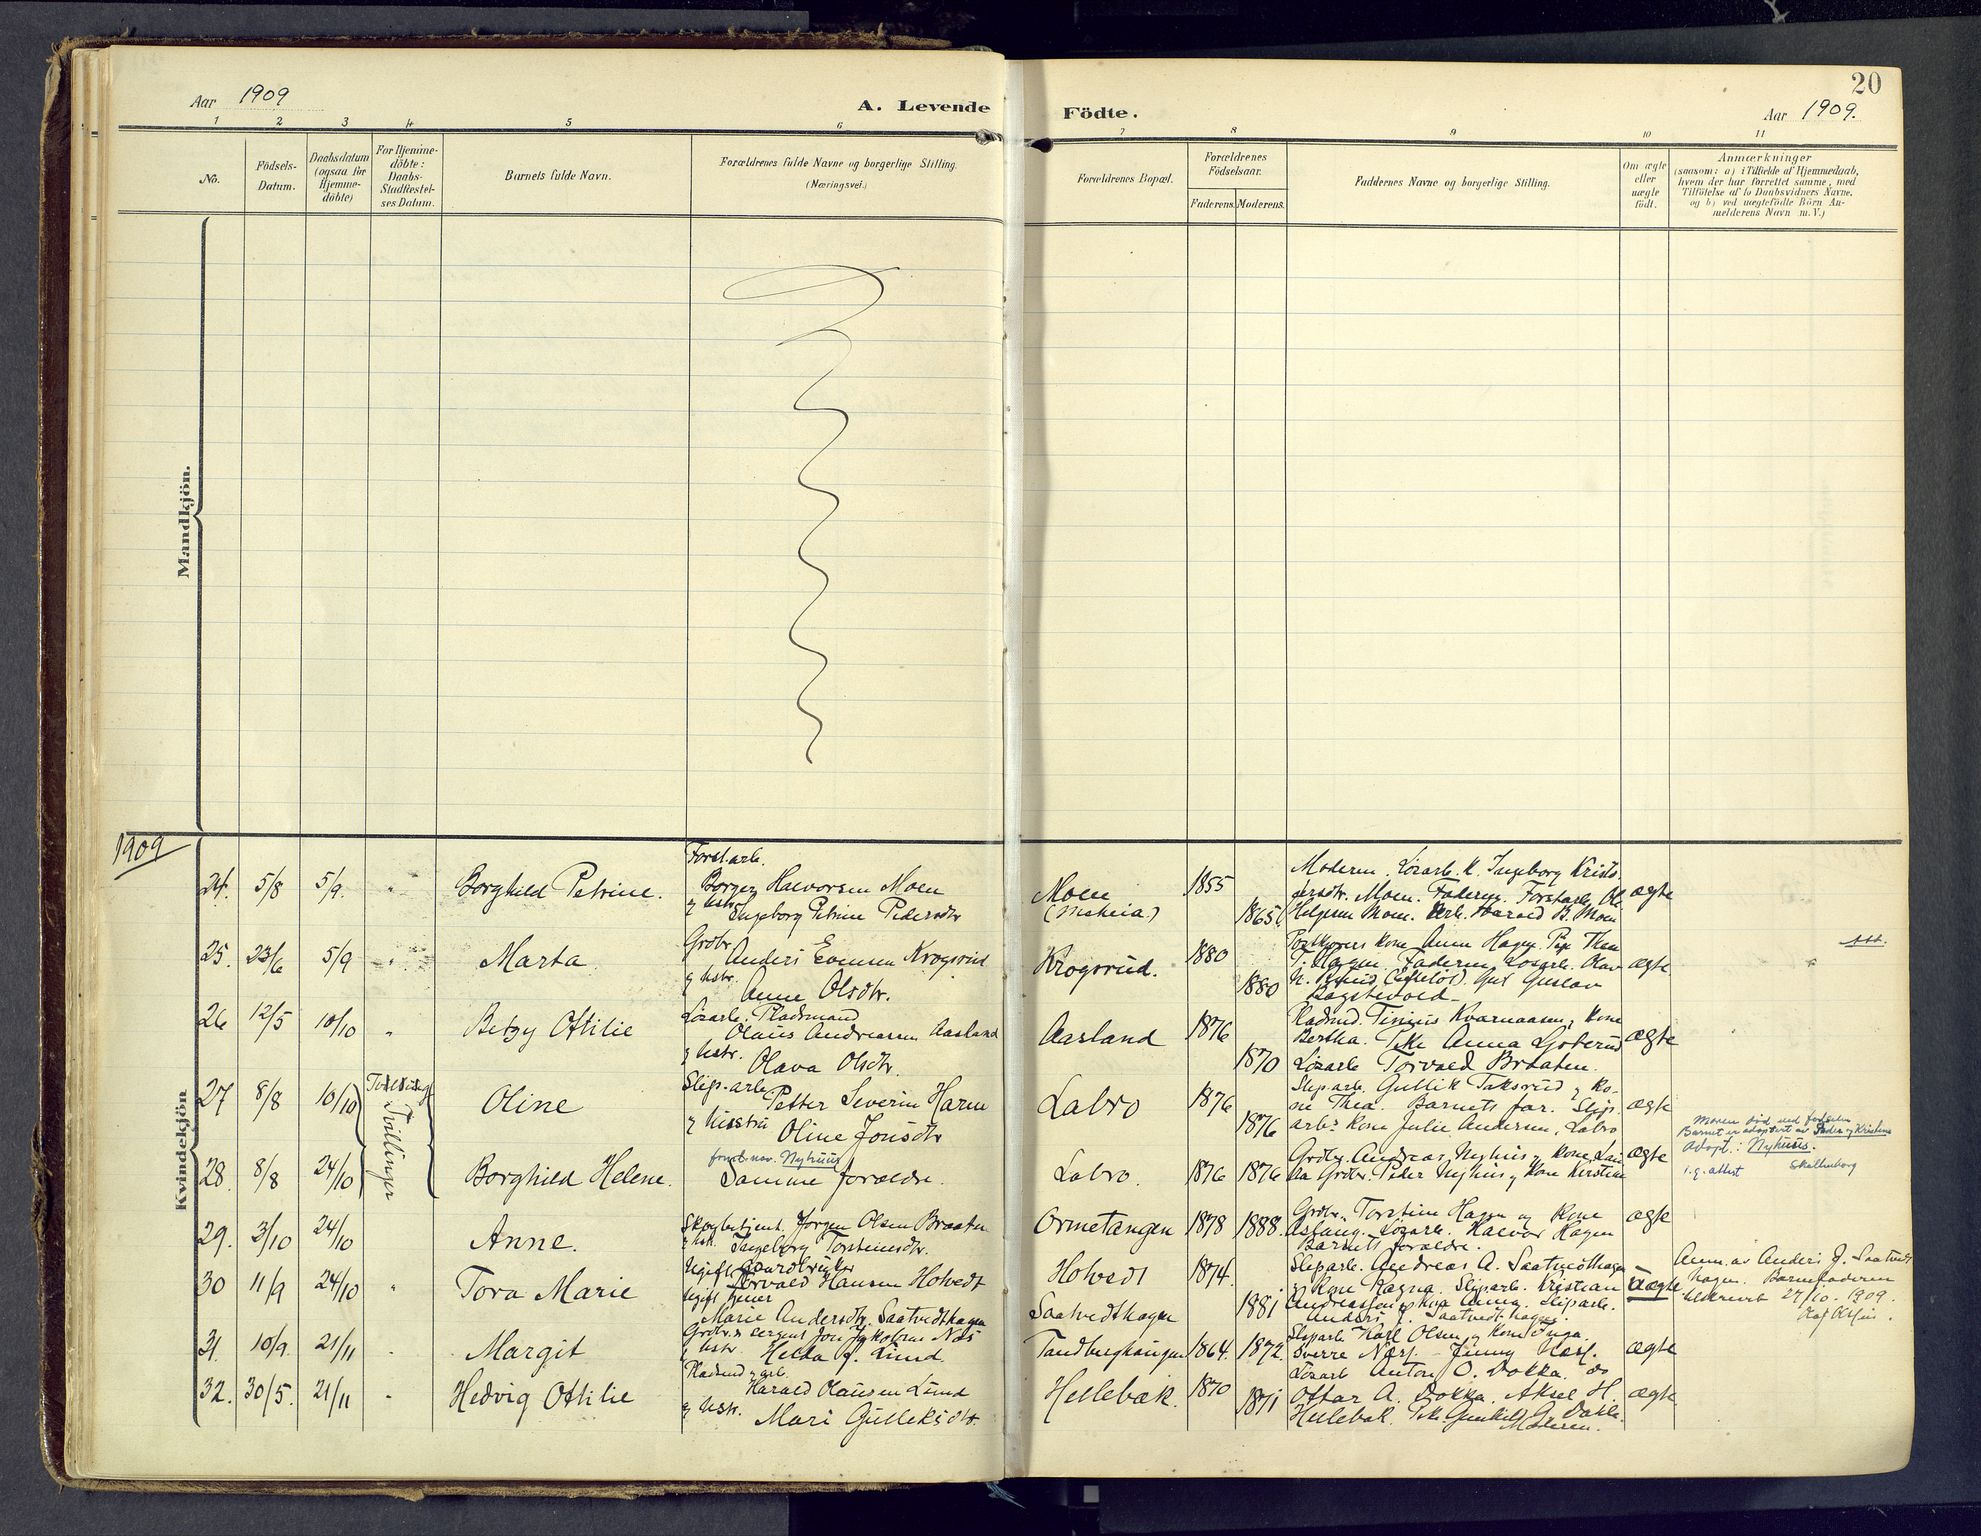 20
Aar 1909
A. Levende Födte.
Aar 1909.
1 2 3 4 5 6 7 8 9 10 11
No.
Födsels-
Datum.
Daabsdatum
(ogsaa for
Hjemme-
döbte)
For Hjemme-
döbte:
Daabs-
Stadfæstel-
ses Datum.
Barnets fulde Navn.
Forældrenes fulde Navne og borgerlige Stilling.
(Næringsvei.)
Forældrenes Bopæl.
Forældrenes
Födselsaar.
Faderens. Moderens.
Faddernes Navne og borgerlige Stilling.
Om ægte
eller
uægte
födt.
Anmærkninger
(saasom: a) i Tilfælde af Hjemmedaab,
hvem der har forrettet samme, med
Tilföielse af to Daabsvidners Navne.
og b) ved uægtefödte Börn An-
melderens Navn m.V.)
Mandkjön.
1909
Kvindekjön
24. 5/8 5/9. " Borghild Petrine.
Forst.arb.
Borger Halvorsen Moen
og hstr. Ingeborg Petrine Pedersdtr
Moen
(Makeia)
1855
1865
Moderen. Løsarb. K. Ingeborg Krist-
ersdtr. Moen. Faderen. Forstarb. Ole
Helgesen Moen. Arb. Harald B. Moen
ægte
25. 23/6 5/9 " Marta.
Grbr.
Anders Evensen Krogsrud
og hstr.
Anne Olsdtr.
Krogsrud.
1880
1880
Postkjørers kone Anne Hagen. Pige Thea
T. Hagen. Faderen. Løsarb. Olav
Gut Gustav
Bagstevold
ægte
26 12/5 10/10 " Betzy Ottilie
Løsarb. Pladsmand
Olaus Andreassen Aasland
og hstr.
Olava Olsdtr.
Aasland
1876
1870
Pladsmd. Tinius Kvarnaasen, Kone
Bertha. Pike Anna Goterud
Løsarb Torvald Braaten.
ægte
27 8/8 10/10 Tvilling Oline
Tvillinger
Slip.arb.
Petter Severin Haren
og hustru
Oline Jonsdtr
Labro
1876
1876
Sliparb. Gullik Taksrud og Ko-
ne Thea. Barnets far. Slip.
arb. Kone Julie Andersen, Labro
ægte
28. 8/8 24/10 Borghild Helene.
fremt. nav. Nyhuus
Samme foraldre.
Labro.
1876 1876
Grdbr. Andreas Nyhus og Kone Lau
ra Grdbr. Peder Nyhus og Kone Kirstine
ægte
Moren død ved fødselen
Barnet er adoptert av Peder og Kristine
Adopt.: Nyhuus.
i.g. attest Skollenborg
29. 3/10 24/10 Anne.
Skogbetjent. Jørgen Olsen Braaten
og hst. Ingeborg Torsteinsdtr.
Ormetangen 1878 1888.
Grdbr. Torstein Hagen og Kone
Aslaug. Løsarb. Halvor Hagen
Barnets foraldre.
ægte
30 11/9 24/10 " Tora Marie
Ugift Gaardbruger
Torvald Hansen Hotvedt
Ugift tjener
Marie Andersdtr. Saatvedthagen
Hotvedt
Saatvedthagen
1874.
1881
Sliparb. Andreas A. Saatvedthagen
og Kone Ragna. Sliparb. Kristian
Andreassen og Kone Anna. Sliparb.
Anders J. Saatvedthagen
Uægte
Anm. av Anders J. Saatvedt
hagen. Barnefaderen
tilskrevet 27/10. 1909.
31. 10/9. 21/11 " Margit
Grdbr. og sergent Jon Jakobsen Næs
og hstr Helda f. Lund.
Tandberghaugen 1864. 1872.
Sliparb Karl Olsen og Kone Inga.
Sverre Næss. Jenny Næss.
ægte
32. 30/5. 21/11 " Hedvig Ottilie
Pladsmd og arb.
Harald Olausen Lund
og hstr.
Mari Gulleksdtr.
Hellebæk.
1870
1871
Løsarb Anton O. Dokka.
Ottar A. Dokka. Aksel H.
Hellebæk. Pike Gunhild G. Dokka.
Moderen.
ægte